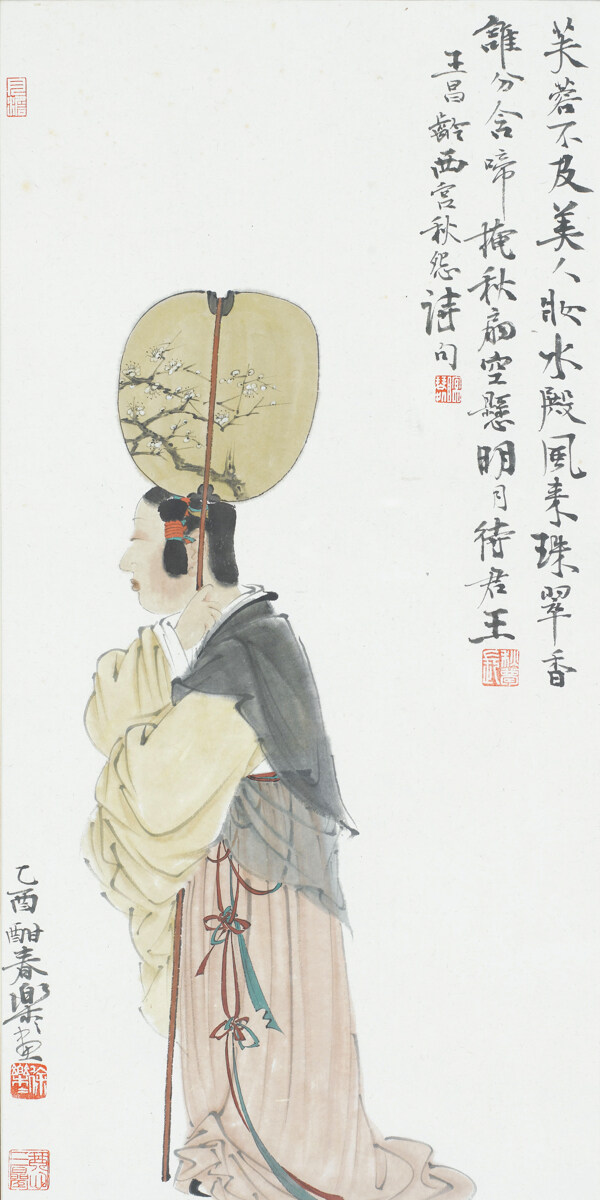 芙蓉不及美人妝水殿風来珠翠香
誰分含啼掩秋扇空懸明月待君王
王昌齡西宮秋怨詩句
乙酉酣春樂〻畫